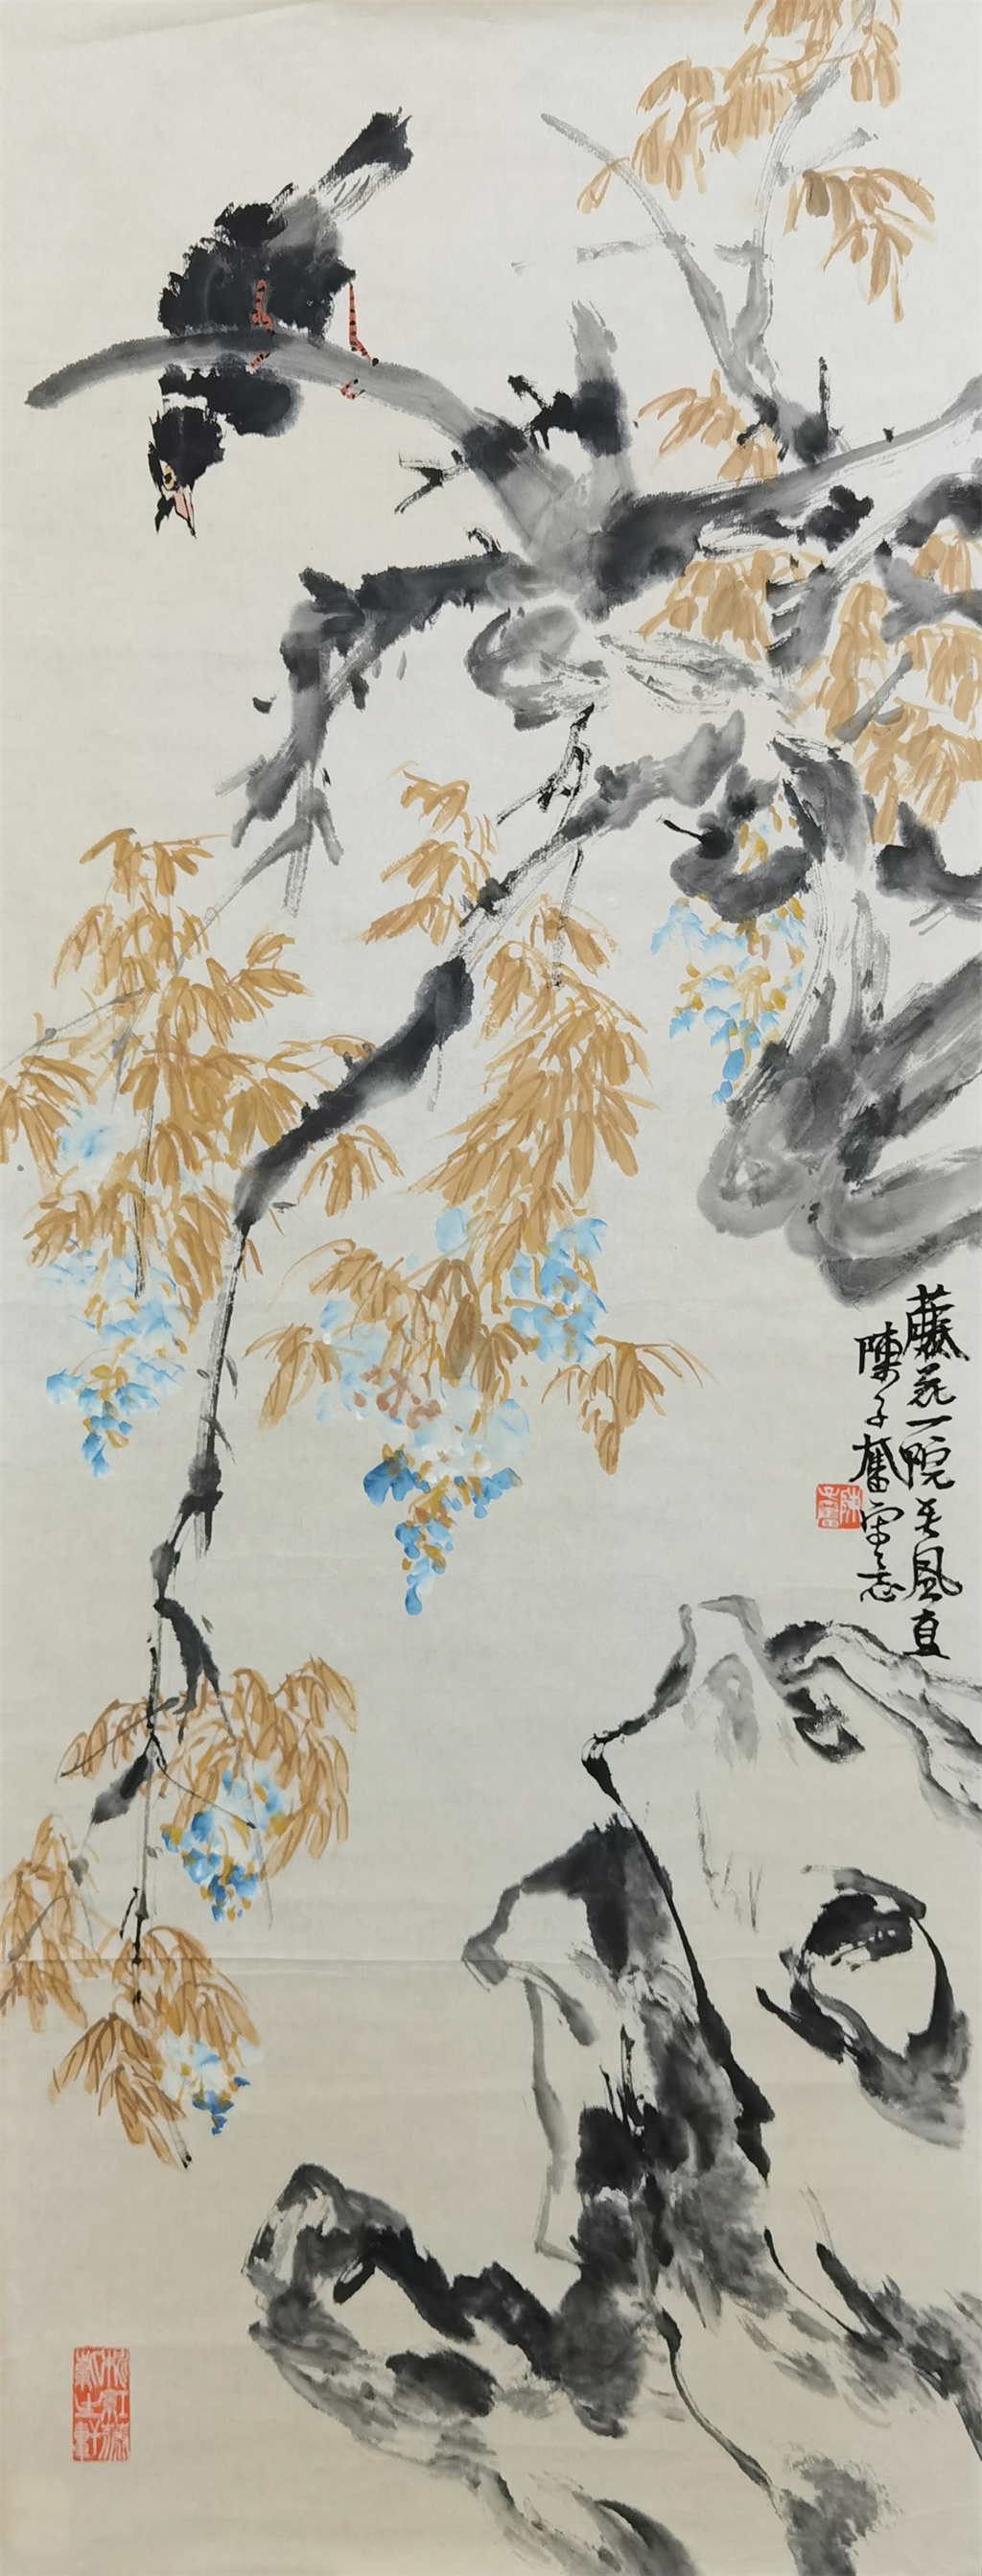 藤花一院春風直
陳子奮寫意